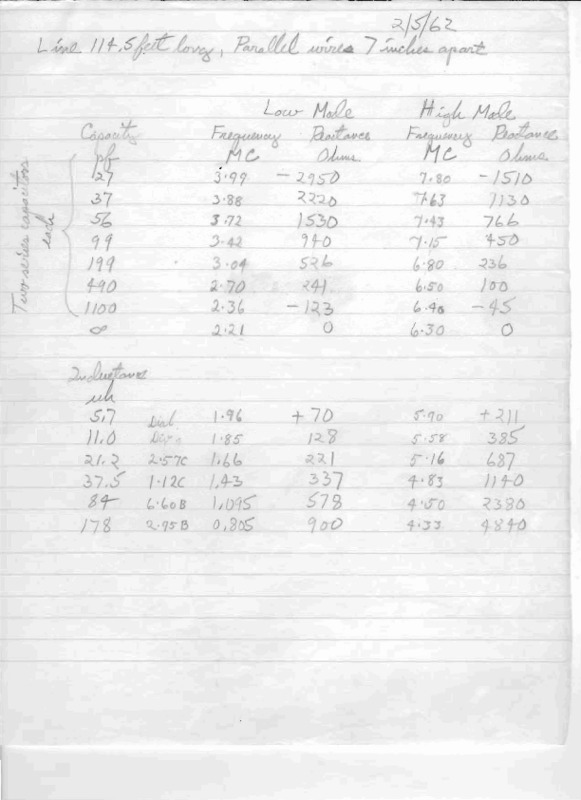 2/5/62
Line 114.5 feet long, Parallel wires 7 inches apart
Low Mode High Mode
Capacity Frequency Reactance Frequency Reactance
pf MC Ohms MC Ohms
Two series capacitors
each
27 3.99 - 2950 7.80 - 1510
37 3.88 2220 7.63 1130
56 3.72 1530 7.43 766
99 3.42 940 7.15 450
199 3.04 526 6.80 236
490 2.70 241 6.50 100
1100 2.36 - 123 6.40 - 45
∞ 2.21 0 6.30 0
Inductance
uh
5.7 Dial 1.96 + 70 5.90 + 211
11.0 1.85 128 5.58 385
21.2 2.57C 1.66 221 5.16 687
37.5 1.12C 1.43 337 4.83 1140
84 6.60B 1.095 578 4.50 2380
178 2.95B 0.805 900 4.33 4840